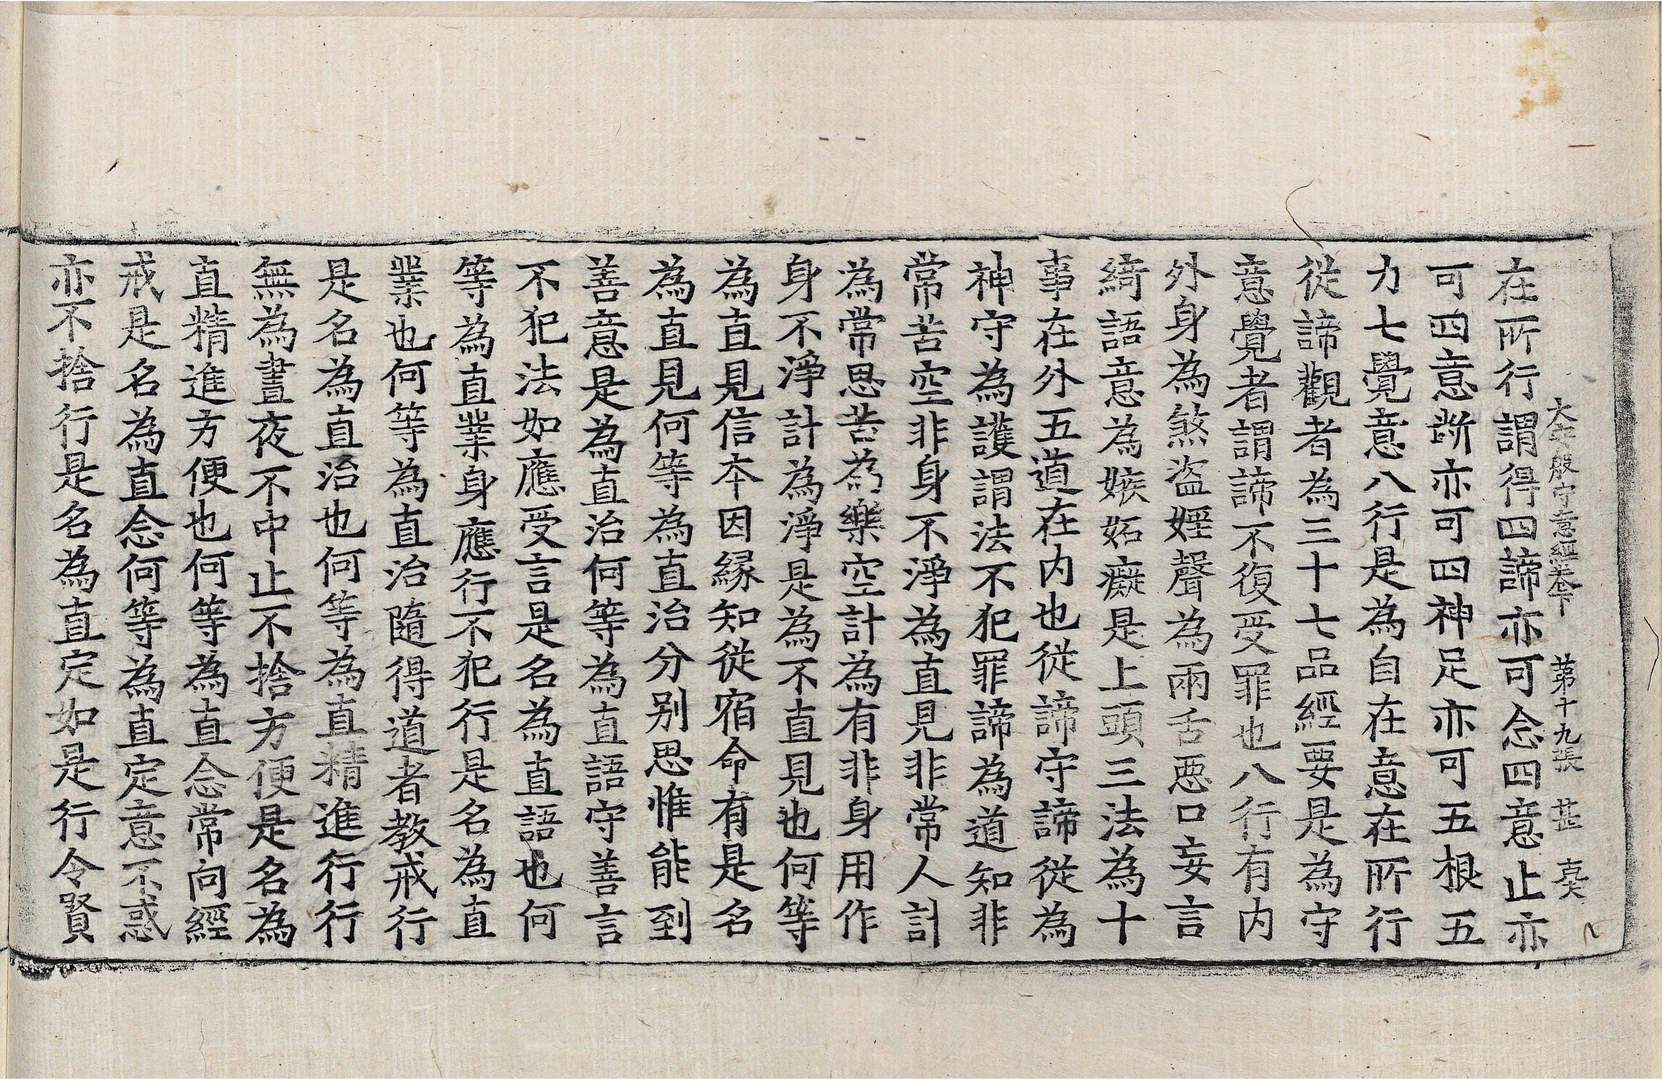 大安般守意經卷下　第十九張　甚
在所行謂得四諦亦可念四意止亦
可四意斷亦可四神足亦可五根五
力七覺意八行是為自在意在所行
從諦觀者為三十七品經要是為守
意覺者謂諦不復受罪也八行有內
外身為煞盜婬聲為兩舌惡口妄言
綺語意為嫉妬癡是上頭三法為十
事在外五道在內也從諦守諦從為
神守為護謂法不犯罪諦為道知非
常苦空非身不淨為直見非常人計
為常思苦為樂空計為有非身用作
身不淨計為淨是為不直見也何等
為直見信本因緣知從宿命有是名
為直見何等為直治分別思惟能到
善意是為直治何等為直語守善言
不犯法如應受言是名為直語也何
等為直業身應行不犯行是名為直
業也何等為直治隨得道者教戒行
是名為直治也何等為直精進行行
無為晝夜不中止不捨方便是名為
直精進方便也何等為直念常向經
戒是名為直念何等為直定意不惑
亦不捨行是名為直定如是行令賢